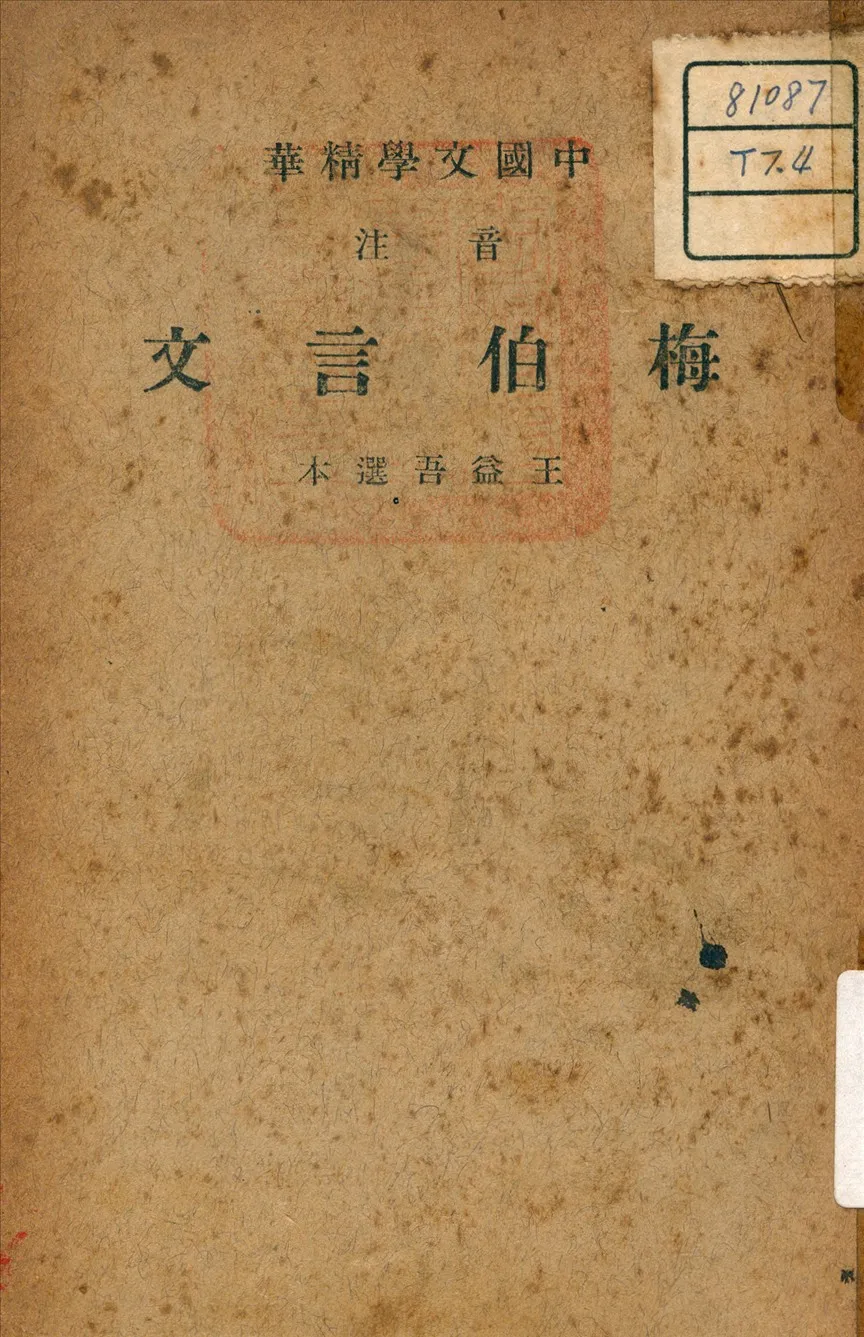 中國文學精華
音注
梅伯言文
王益吾選本
81087
T7.4